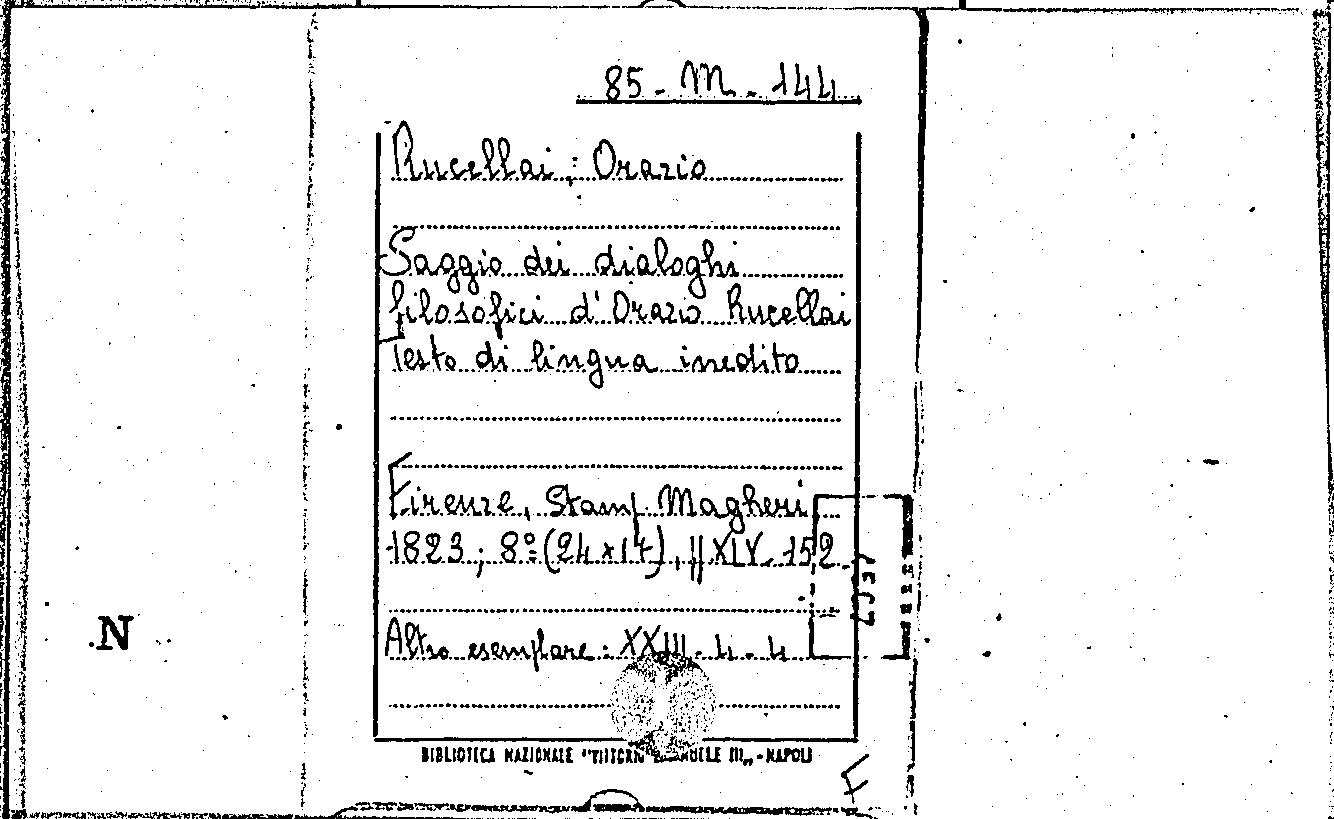 85 - M - 144
Rucellai, Orazio
Saggio dei dialoghi
filosofici d'Orazio Rucellai
Testo di lingua inedito
Firenze, Stamp Magheri
1823; 8º (24x17), pp XLV-152
Altro esemplare: XXIII-4-4
BIBLIOTECA NAZIONALE "VITTORIO EMANUELE III„ - NAPOLI
N